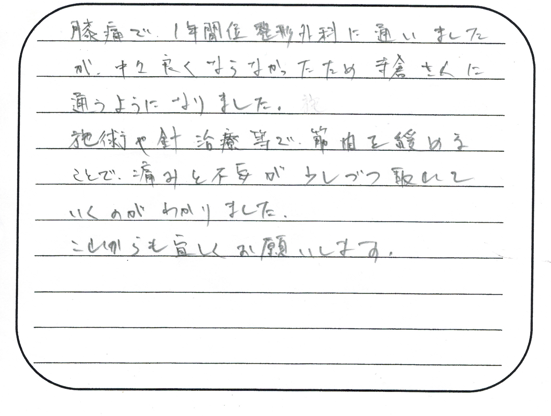 膝痛で、1年間位整形外科に通いました
が、中々良くならなかったため寺倉さんに
通うようになりました。
施術や針治療等で、筋肉を緩める
ことで、痛みと不安が少しづつ取れて
いくのがわかりました。
これからも宜しくお願いします。